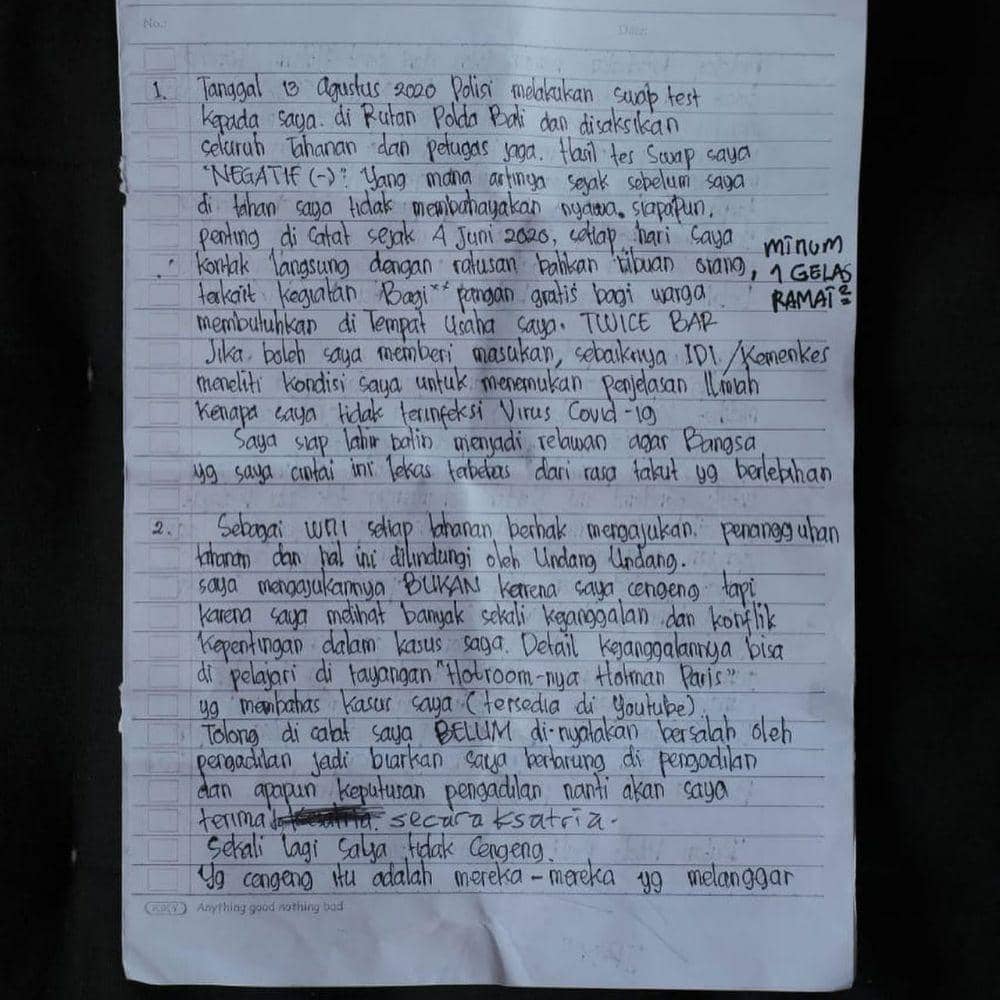 No.:
Date:
1. Tanggal 13 Agustus 2020 Polisi melakukan swap test
kepada saya. di Rutan Polda Bali dan disaksikan
seluruh Tahanan dan petugas jaga. Hasil tes Swap saya
"NEGATIF (-)". Yang mana artinya sejak sebelum saya
di tahan saya tidak membahayakan nyawa. siapapun.
penting di catat sejak 4 Juni 2020, setiap hari saya
kontak langsung dengan ratusan bahkan ribuan orang, minum 1 GELAS RAMAI²
terkait kegiatan Bagi** pangan gratis bagi warga
membutuhkan di Tempat Usaha saya. TWICE BAR
Jika boleh saya memberi masukan, sebaiknya IDI/Kemenkes
meneliti kondisi saya untuk menemukan penjelasan Ilmiah
Kenapa saya tidak terinfeksi Virus Covid-19
Saya siap lahir batin menjadi relawan agar Bangsa
yg saya cintai ini lekas tebebas dari rasa takut yg berlebihan
2. Sebagai WNI setiap tahanan berhak mengajukan. penangguhan
tahanan dan hal ini dilindungi oleh Undang Undang.
saya mengajukannya BUKAN karena saya cengeng tapi
karena saya melihat banyak sekali kejanggalan dan konflik
Kepentingan dalam kasus saya. Detail kejanggalannya bisa
di pelajari di tayangan "Hotroom-nya Hotman Paris"
yg membahas kasus saya (tersedia di Youtube).
Tolong di catat saya BELUM di-nyatakan bersalah oleh
pengadilan jadi biarkan saya bertarung di pengadilan
dan apapun keputusan pengadilan nanti akan saya
terima secara ksatria.
Sekali lagi saya tidak Cengeng.
Yg cengeng itu adalah mereka-mereka yg melanggar
KIKY Anything good nothing bad